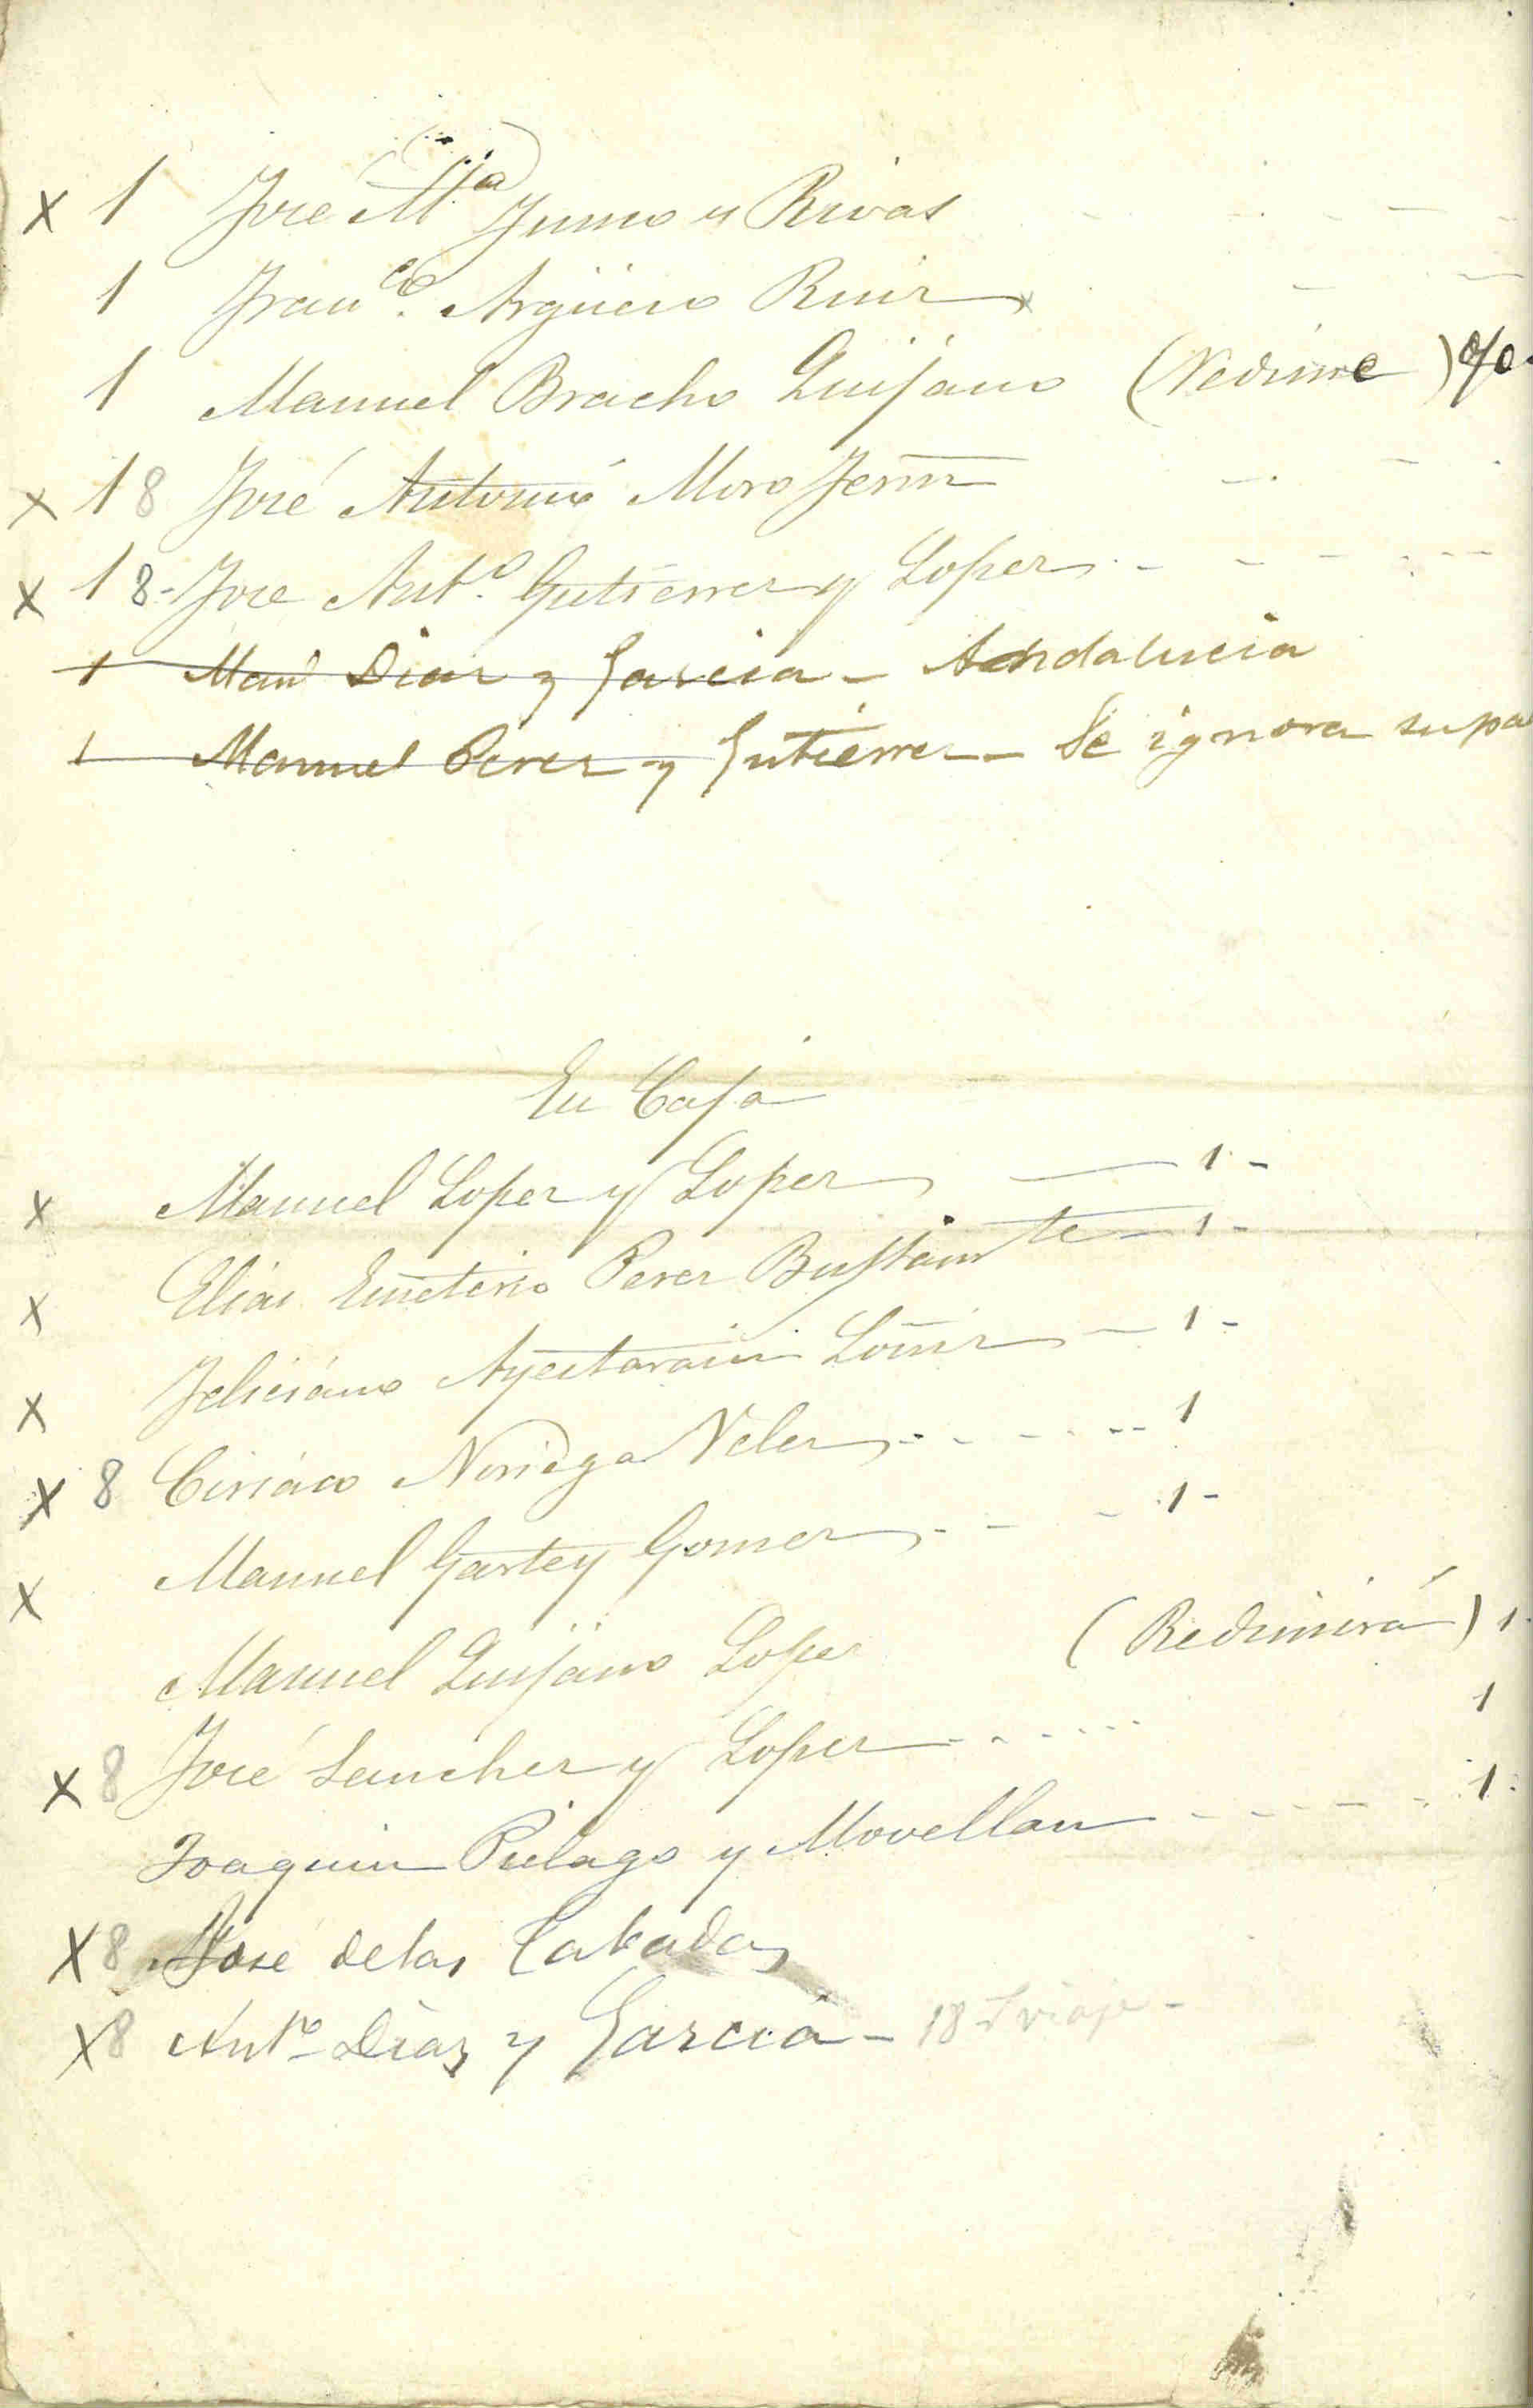 x 1 José M.ª Junco y Rivas
1 Fran.co Argüeso Ruiz x
1 Manuel Bracho Quijano (Redime)
x 1 8 José Antonio Moro
x 1 8- Jose Ant.o Gutierrez y Lopez
1 Manl Diaz y Garcia - Andalucia
1 Manuel Perez y Gutierrez - Se ignora su pa
En Caja
x Manuel Lopez y Lopez — 1 -
x Elias Emeterio Perez Bustamte — 1 -
x Feliciano — 1 -
x 8 Ciriaco Noriega Velez - - - - 1
x Manuel Gomez - - - 1 -
Manuel Quijano Lopez (Redimirá) 1
x 8 José Sanchez y Lopez - - - - 1
Joaquin Pielago y Movellan - - - - 1
x 8 Jose de las Cabadas
x 8 Ant.o Diaz y Garcia - 18 viaje -